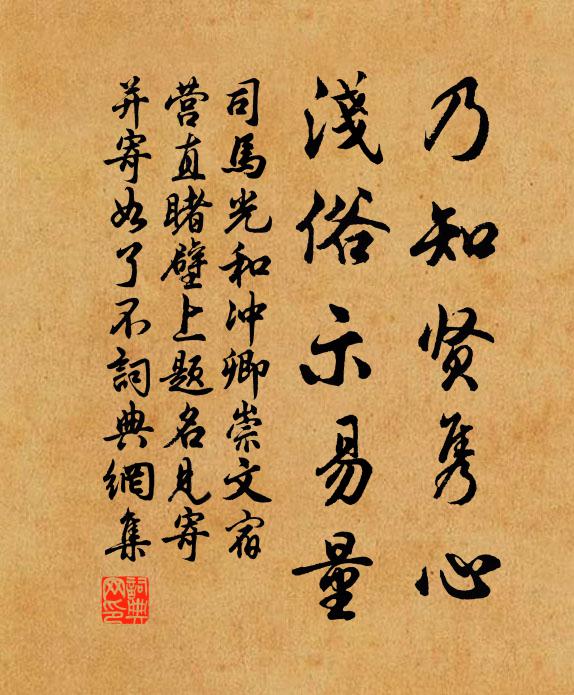 乃知贤隽心
淺俗示易量
司馬光和冲卿崇文宿
营直睹壁上题名见寄
并寄如了不詞典網集
詞典
网印